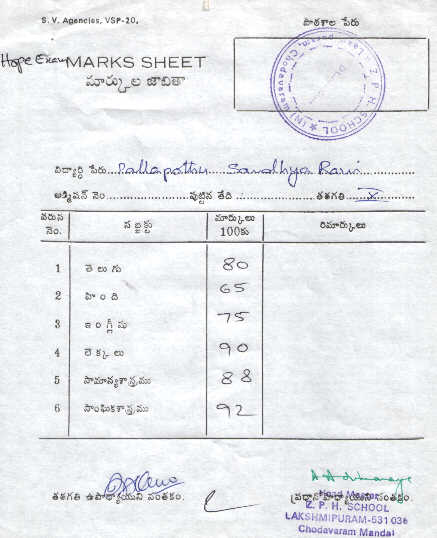 S. V. Agencies, VSP-20.
పాఠశాల పేరు
Hope Exam MARKS SHEET
మార్కుల జాబితా
Z. P. H. SCHOOL (N)
విద్యార్థి పేరు Pallapothu Sandhya Rani
అడ్మిషన్ నెం పుట్టిన తేది : తరగతి X
వరుస నెం. సబ్జక్టు మార్కులు 100కు రిమార్కులు
1 తెలుగు 80
2 హింది 65
3 ఇంగ్లీషు 75
4 లెక్కలు 90
5 సామాన్యశాస్త్రము 88
6 సాంఘికశాస్త్రము 92
తరగతి ఉపాధ్యాయుని సంతకం. ప్రధానోపాధ్యాయుని సంతకం.
Head Master
Z. P. H. SCHOOL
LAKSHMIPURAM-531 036
Chodavaram Mandal